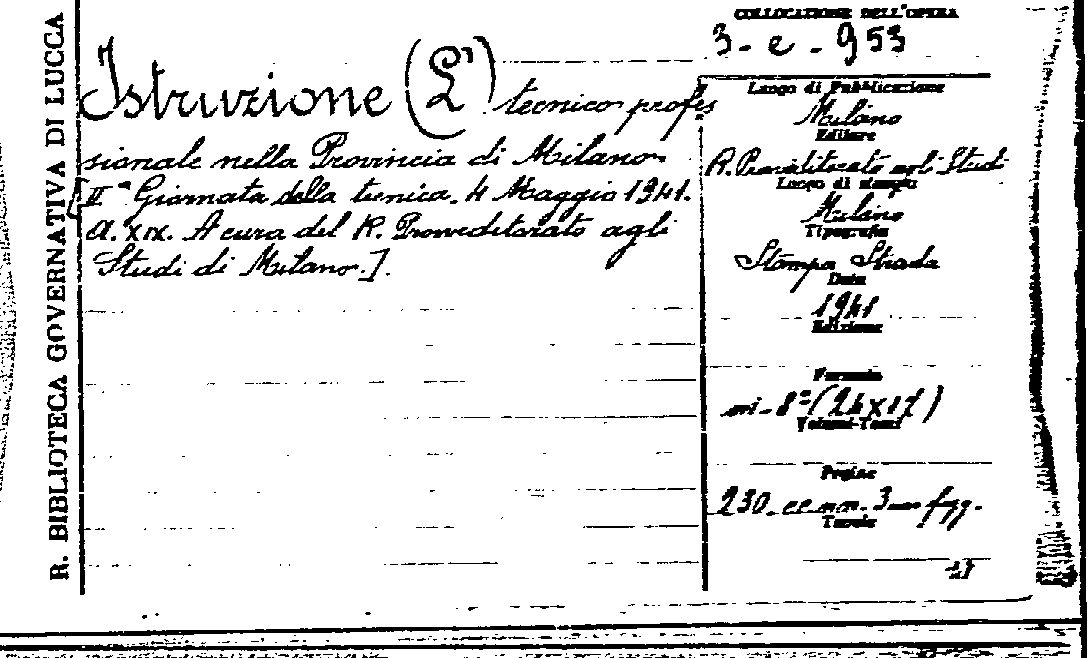 R. BIBLIOTECA GOVERNATIVA DI LUCCA
COLLOCAZIONE DELL'OPERA
3-e-953
Istruzione (L') tecnico profes
sionale nella Provincia di Milano
[IIª Giornata della tecnica. 4 Maggio 1941.
A. XIX. A cura del R. Provveditorato agli
Studi di Milano.].
Luogo di Pubblicazione
Milano
Editore
R. Provveditorato agli Studi
Luogo di stampa
Milano
Tipografia
Stampa Strada
Data
1941
Edizione
Formato
in-8º (24x17)
Volumi-Tomi
Pagine
230. cc nn. 3 fgg.
Tavole